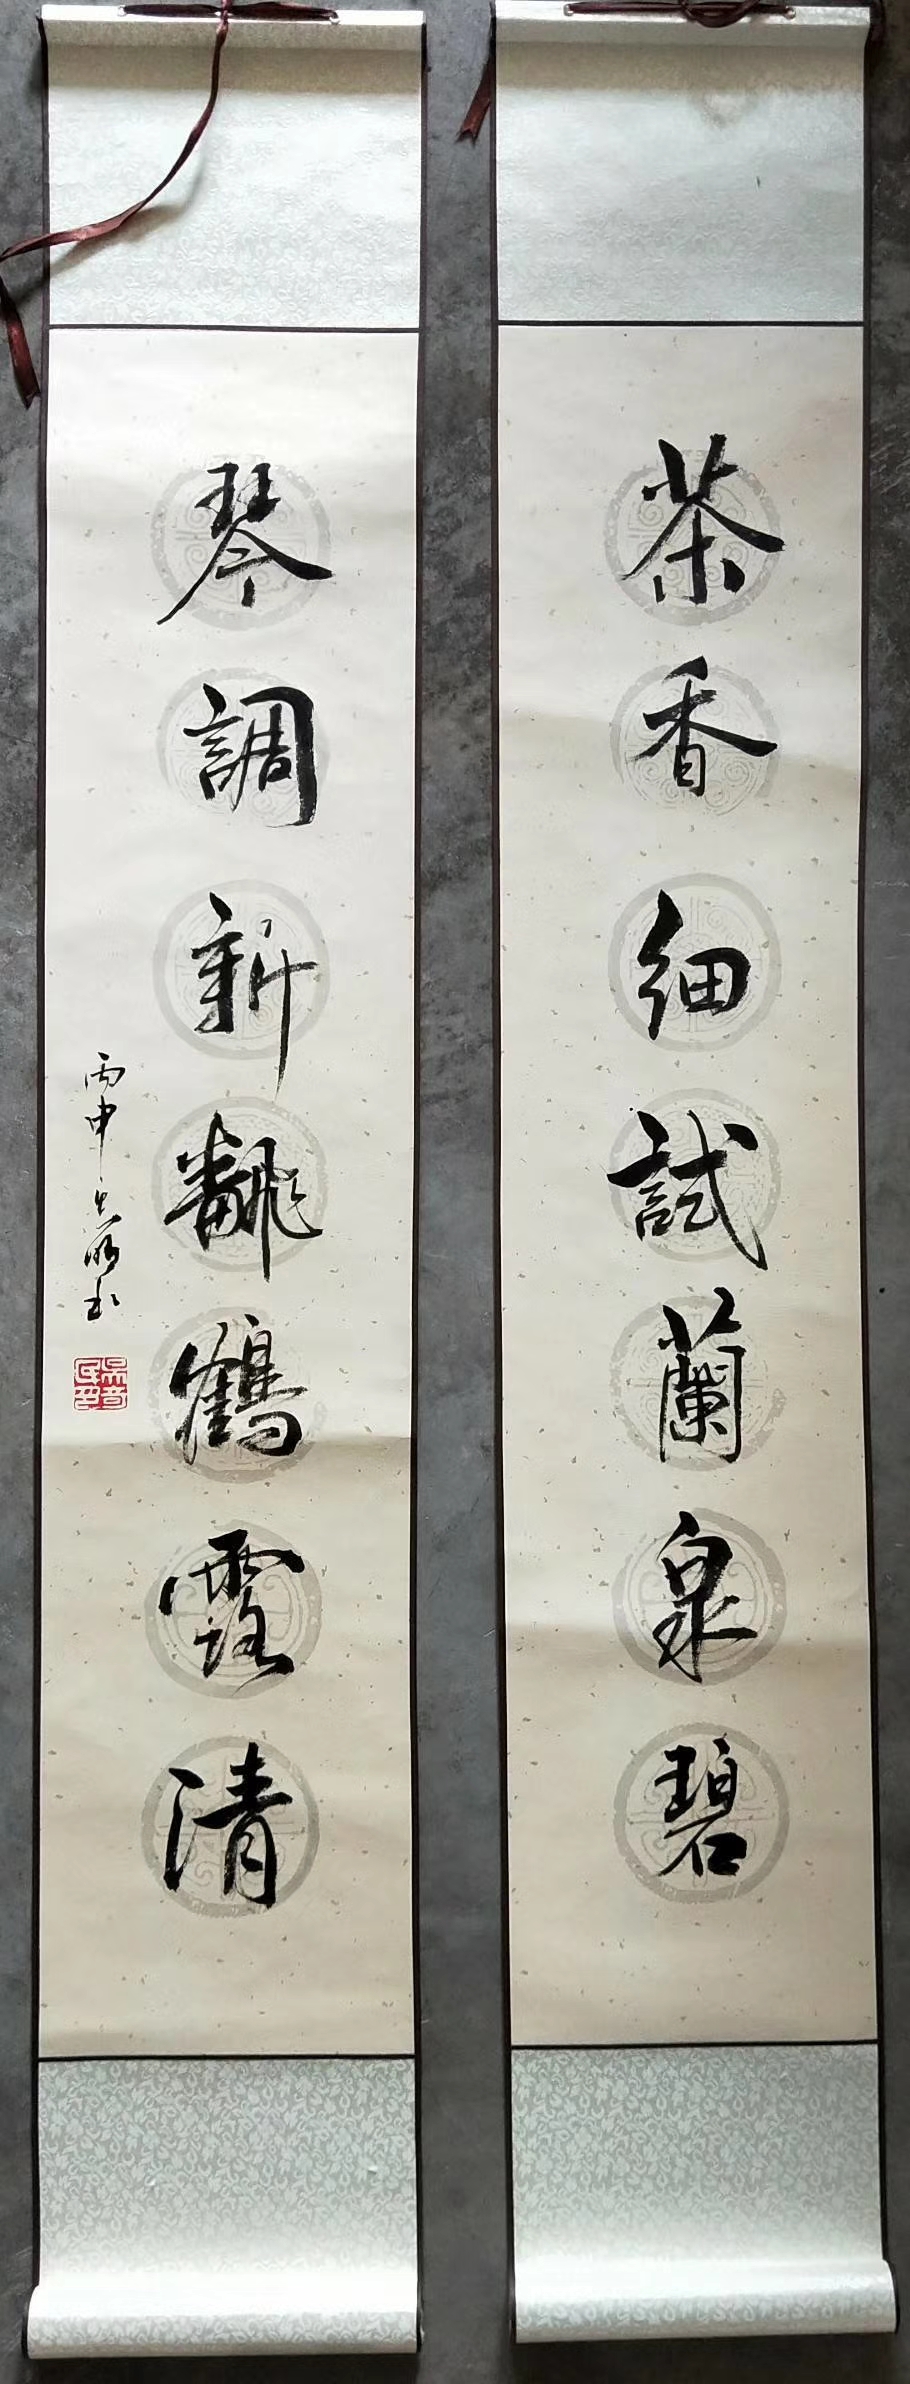 茶香細試蘭泉碧
琴調新飜鶴露清
丙申